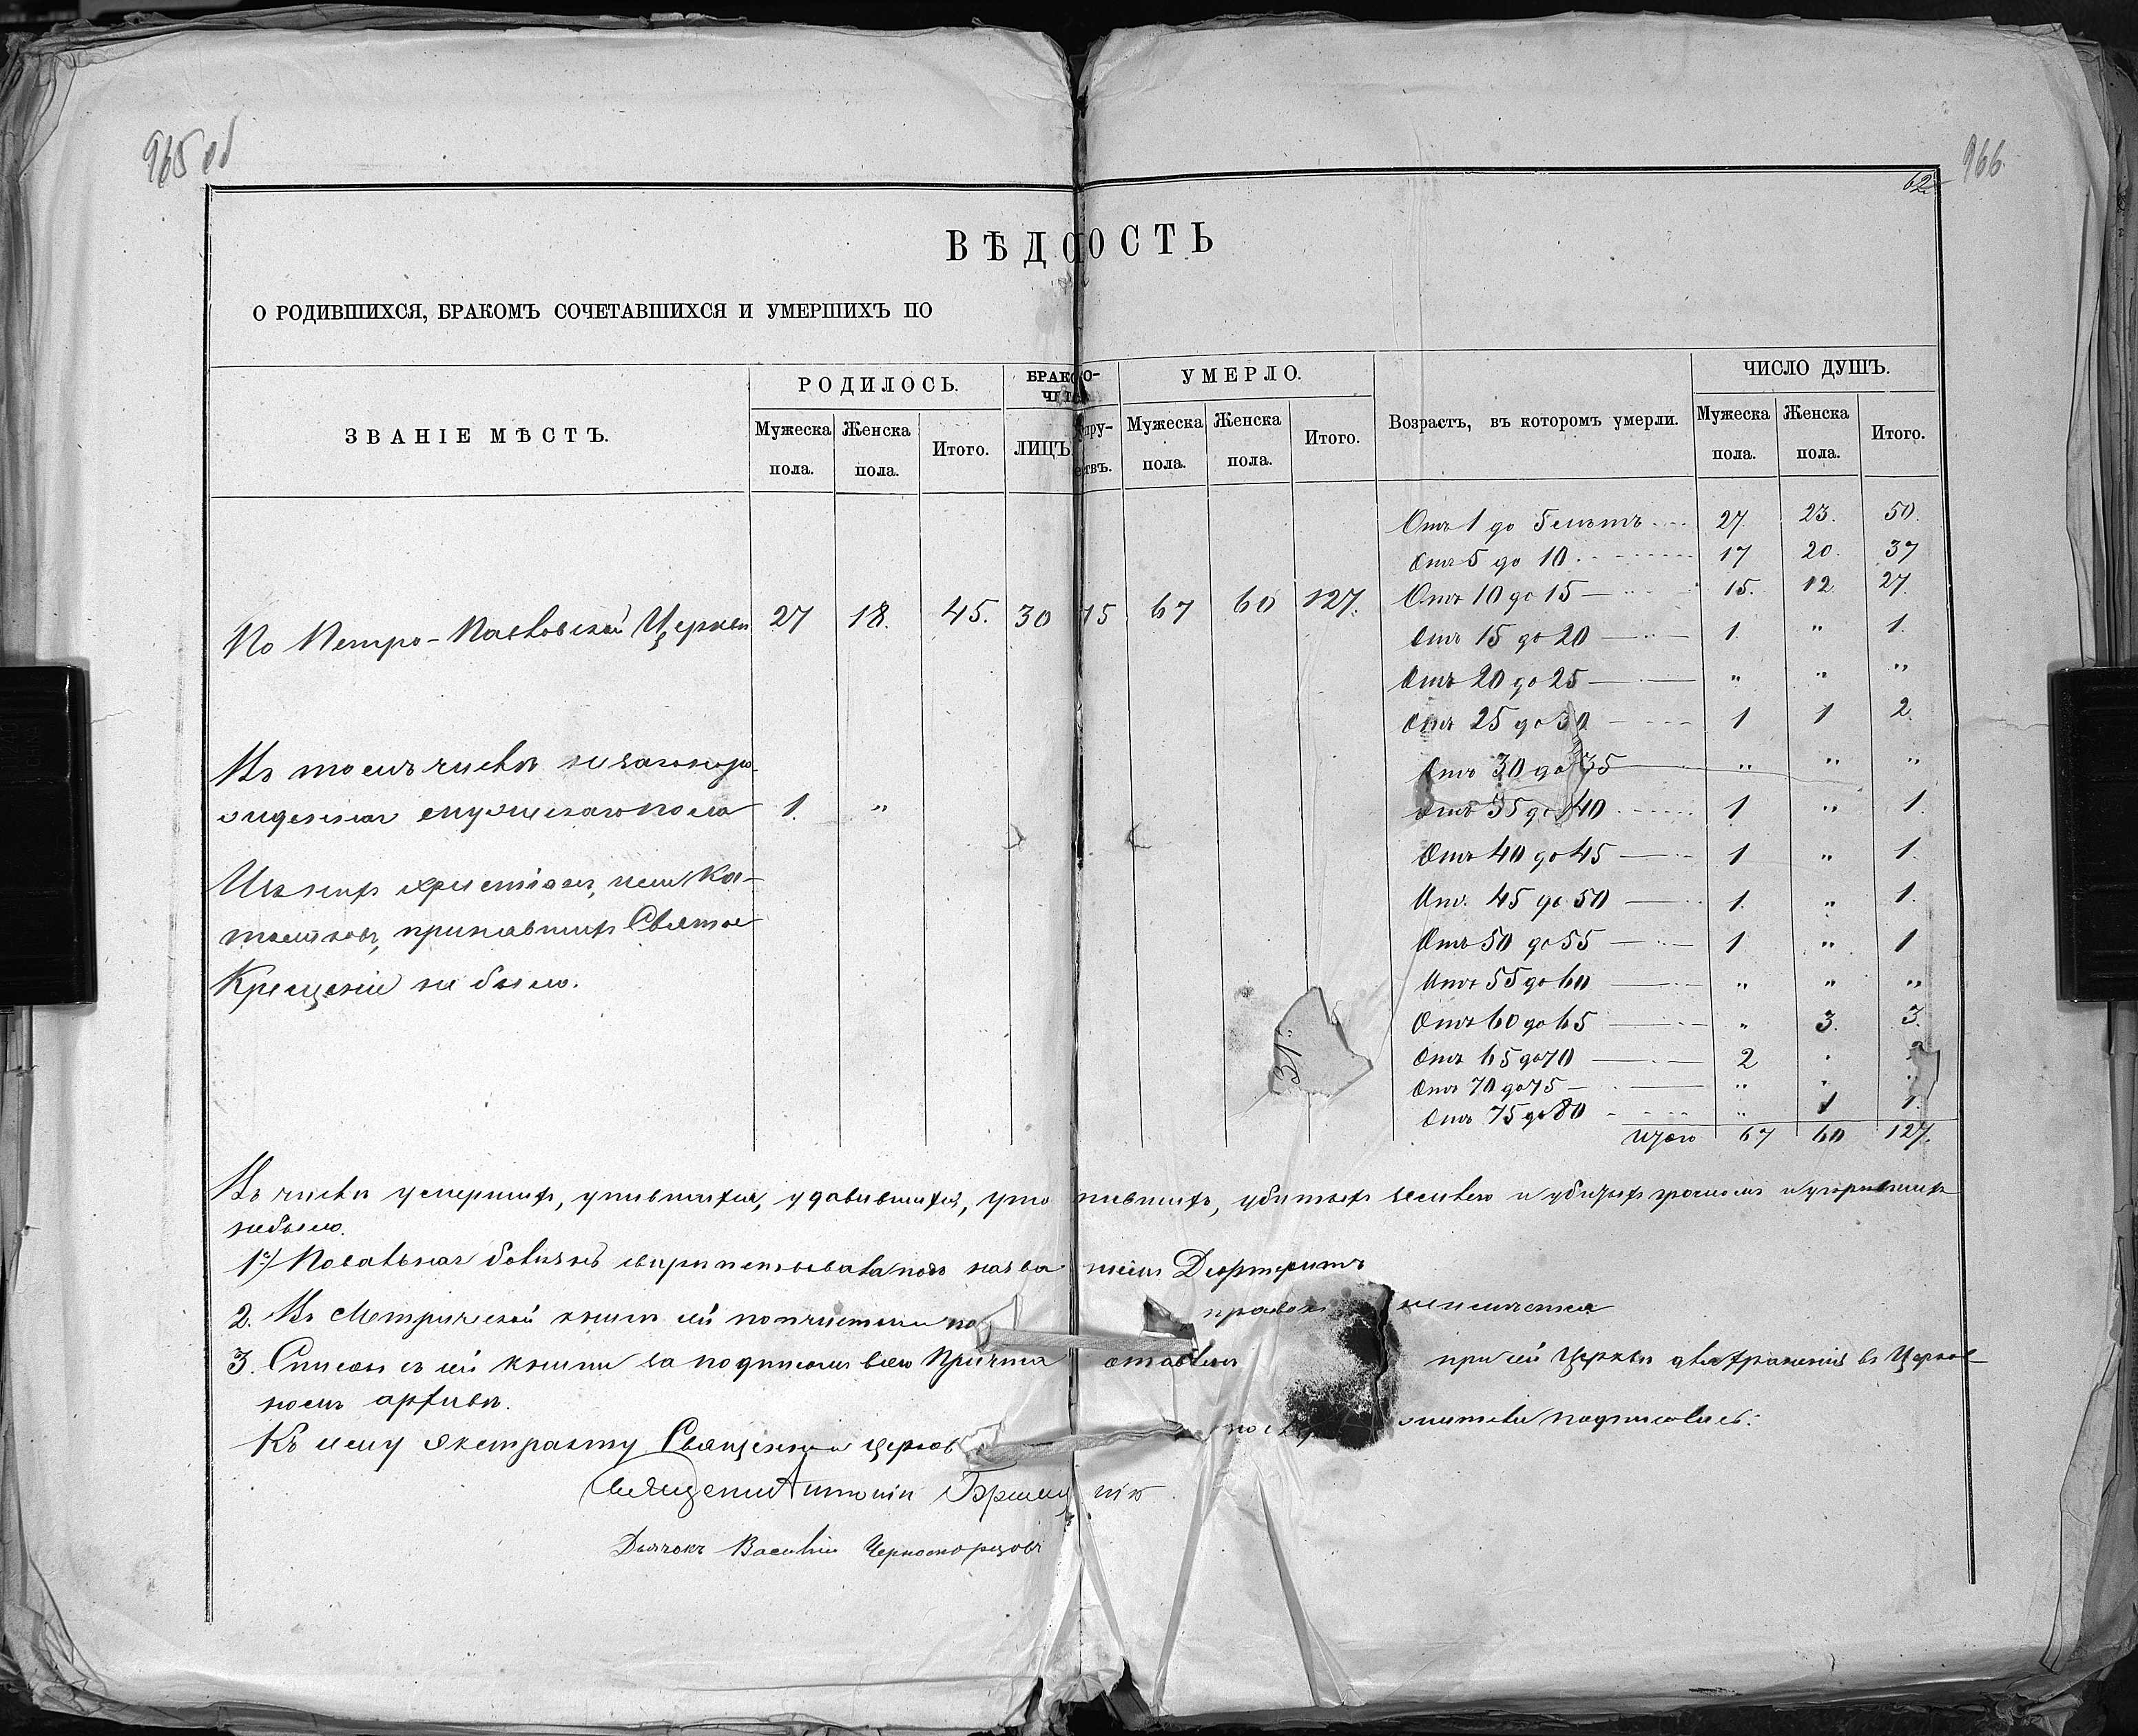 965 об
966
62
ВѢДОМОСТЬ
О РОДИВШИХСЯ, БРАКОМЪ СОЧЕТАВШИХСЯ И УМЕРШИХЪ ПО
ЗВАНІЕ МѢСТЪ. РОДИЛОСЬ. БРАКО- УМЕРЛО. Возрастъ, въ которомъ умерли. ЧИСЛО ДУШЪ.
Мужеска пола. Женска пола. Итого. ЛИЦЪ. Мужеска пола. Женска пола. Итого. Мужеска пола. Женска пола. Итого.
Отъ 1 до 5 лѣтъ 27. 23. 50.
Отъ 5 до 10 17 20. 37
Отъ 10 до 15 15. 12 27.
По Петро-Павловской Церкви 27 18. 45. 30 15 67 60 127.
Отъ 15 до 20 1. " 1.
Отъ 20 до 25 " " "
Отъ 25 до 30 1 1 2.
Отъ 30 до 35 " " "
Отъ 35 до 40 1 " 1.
Отъ 40 до 45 1 " 1.
Отъ 45 до 50 1. " 1.
Отъ 50 до 55 1 " 1
Отъ 55 до 60 " " "
Отъ 60 до 65 " 3. 3.
Отъ 65 до 70 2 "
Отъ 70 до 75 " " "
Отъ 75 до 80 " 1 1.
Итого 67 60 127.
Въ томъ числѣ незаконоро-
жденная мужескаго пола 1. "
Иныхъ христіанъ, или Ка-
толиковъ, принявшихъ Святое
Крещеніе не было.
31.
Въ числѣ умершихъ, упившихся, удавившихся, уто нившихъ, убитыхъ и убитыхъ громомъ и угорѣвшихъ
небыло.
1е) Повальная болѣзнь свирѣпствовала подъ назва ніемъ Дифтеритъ
2. Въ Метрической книгѣ сей по
3. Списокъ съ сей книги за подписомъ всего Причта оставленъ при сей Церкви для храненія въ Церков-
номъ архивѣ.
Къ сему экстракту Священно и церков подписались:
Священникъ Антоній
Дьячокъ Василій Черноморцовъ